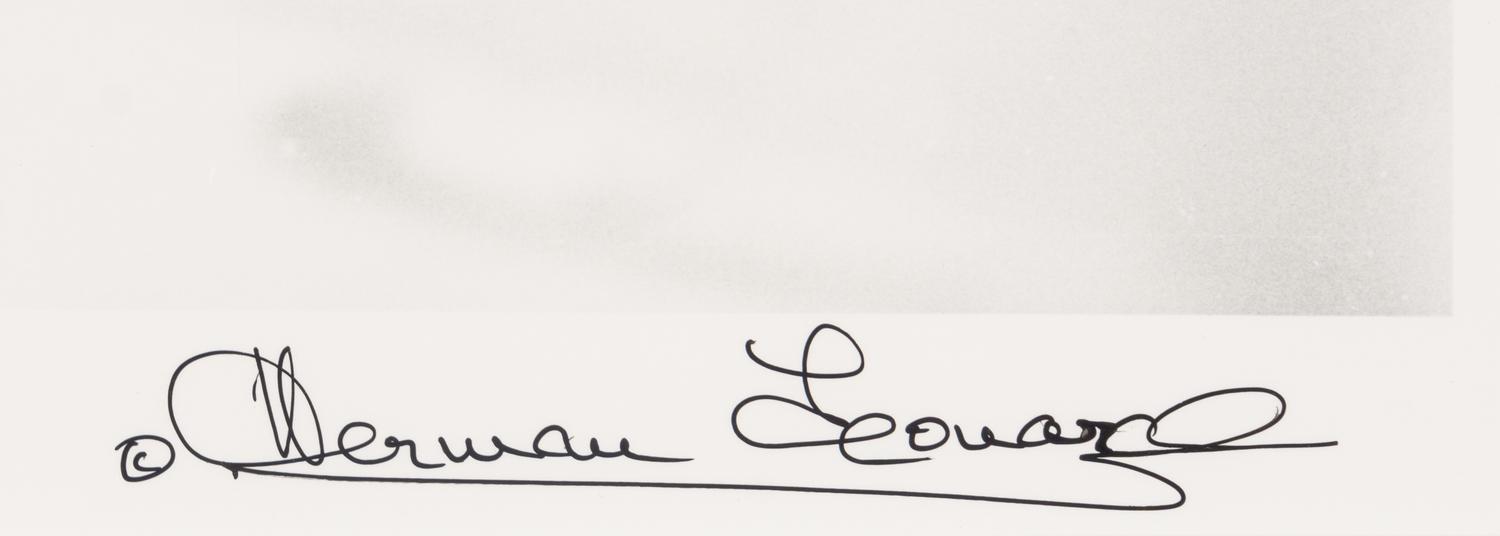 © Herman Leonard